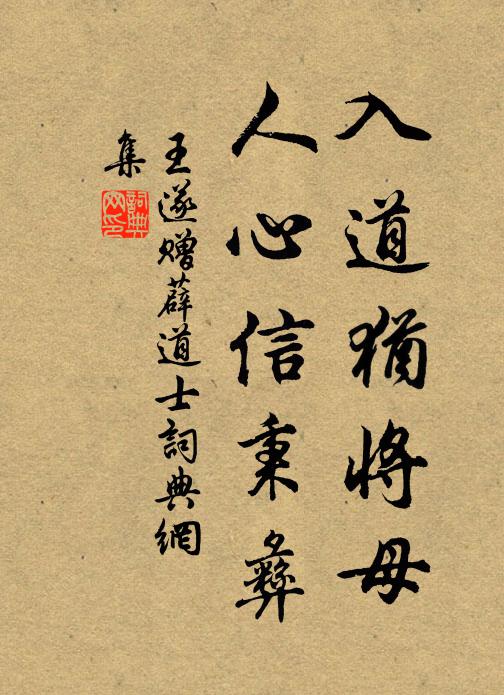 入道猶將母
人心信秉彝
王遂贈薛道士詞典網
集
詞典
网印